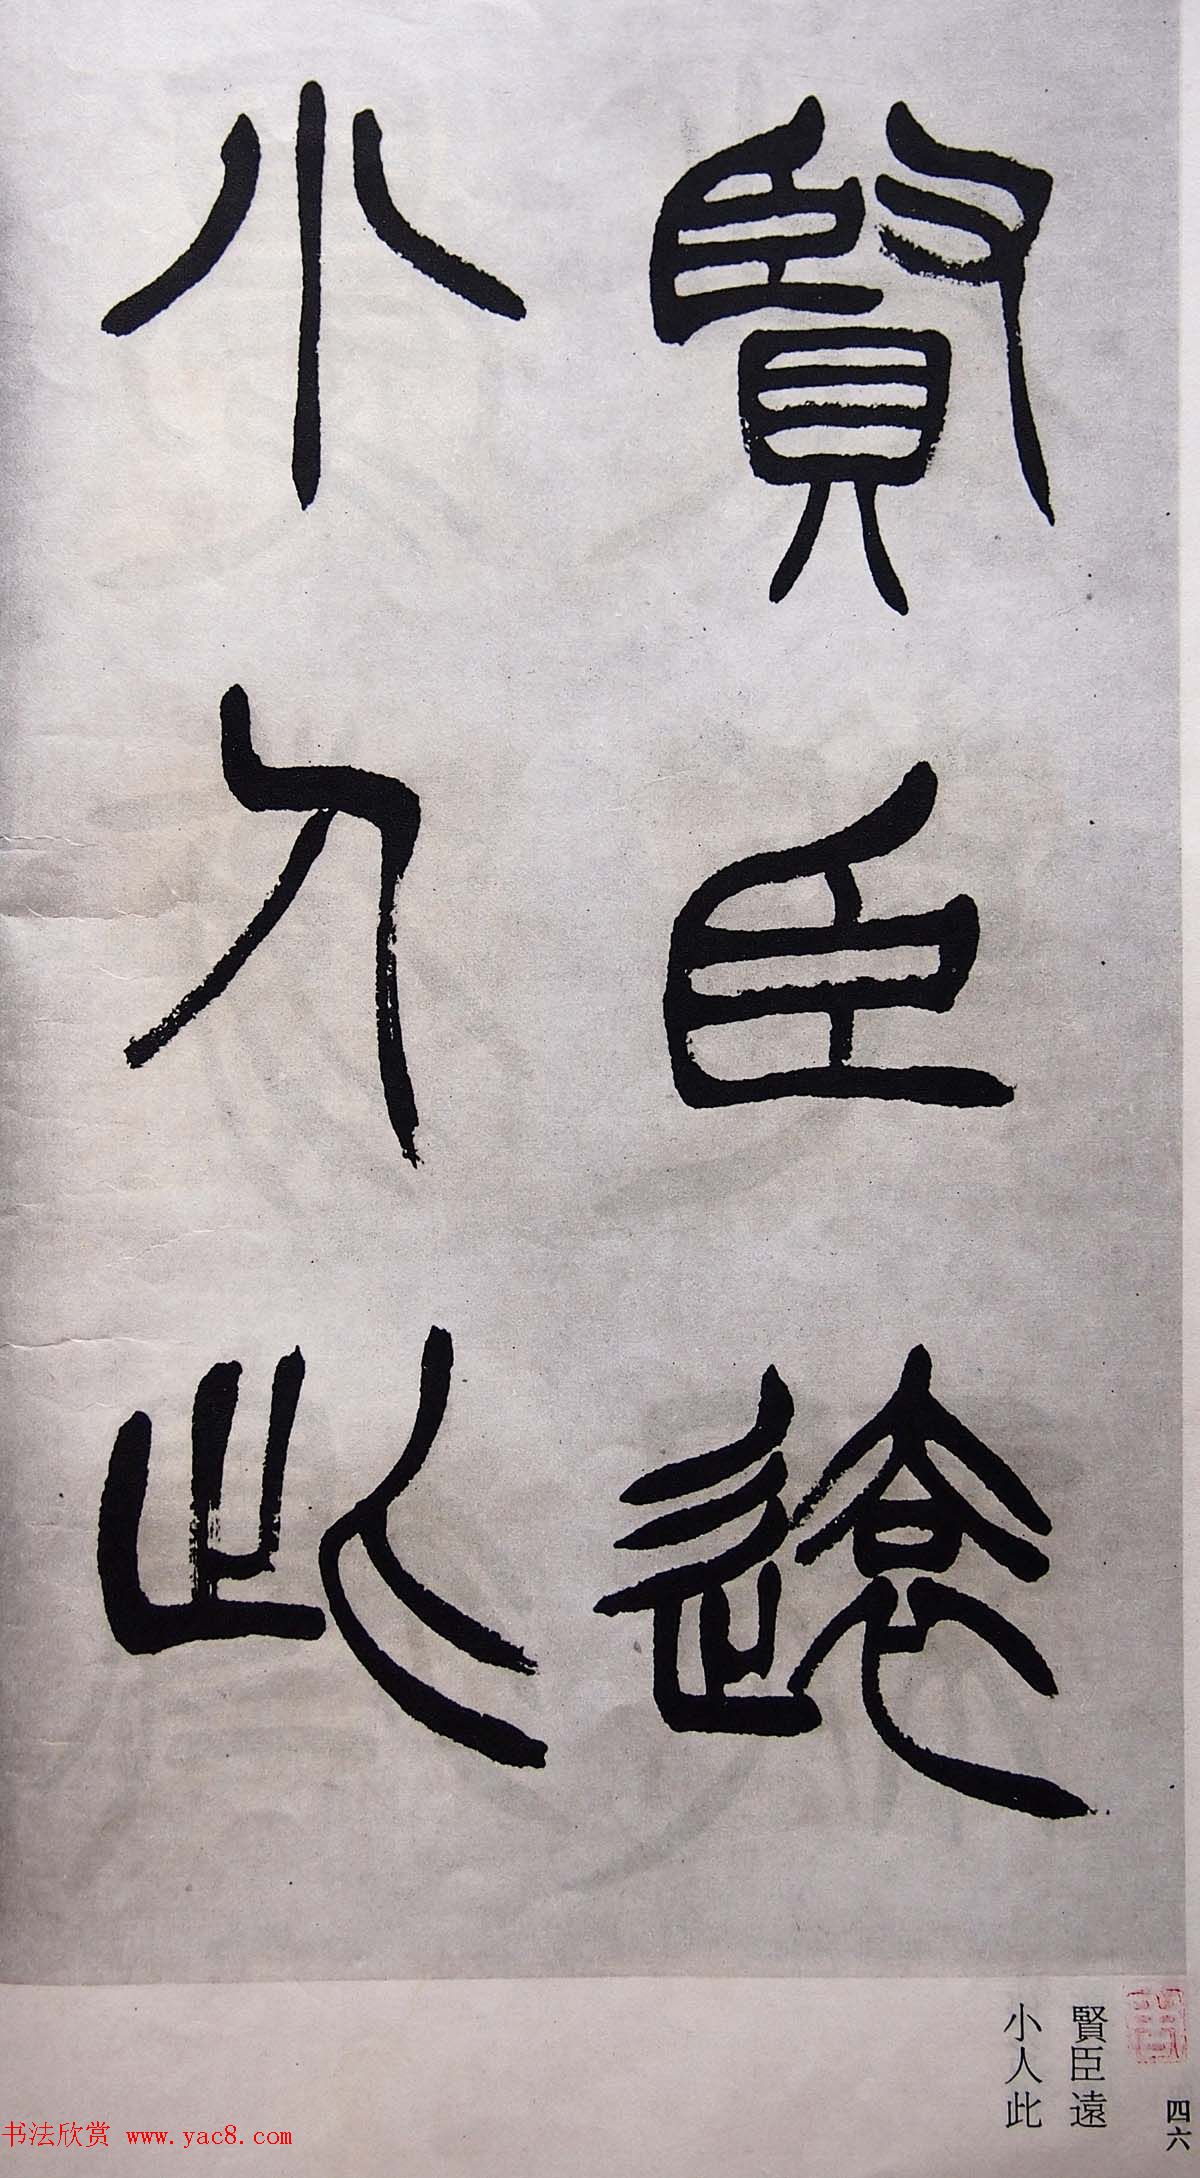 賢臣遠
小人此
賢臣遠
小人此
四六
书法欣赏 www.yac8.com